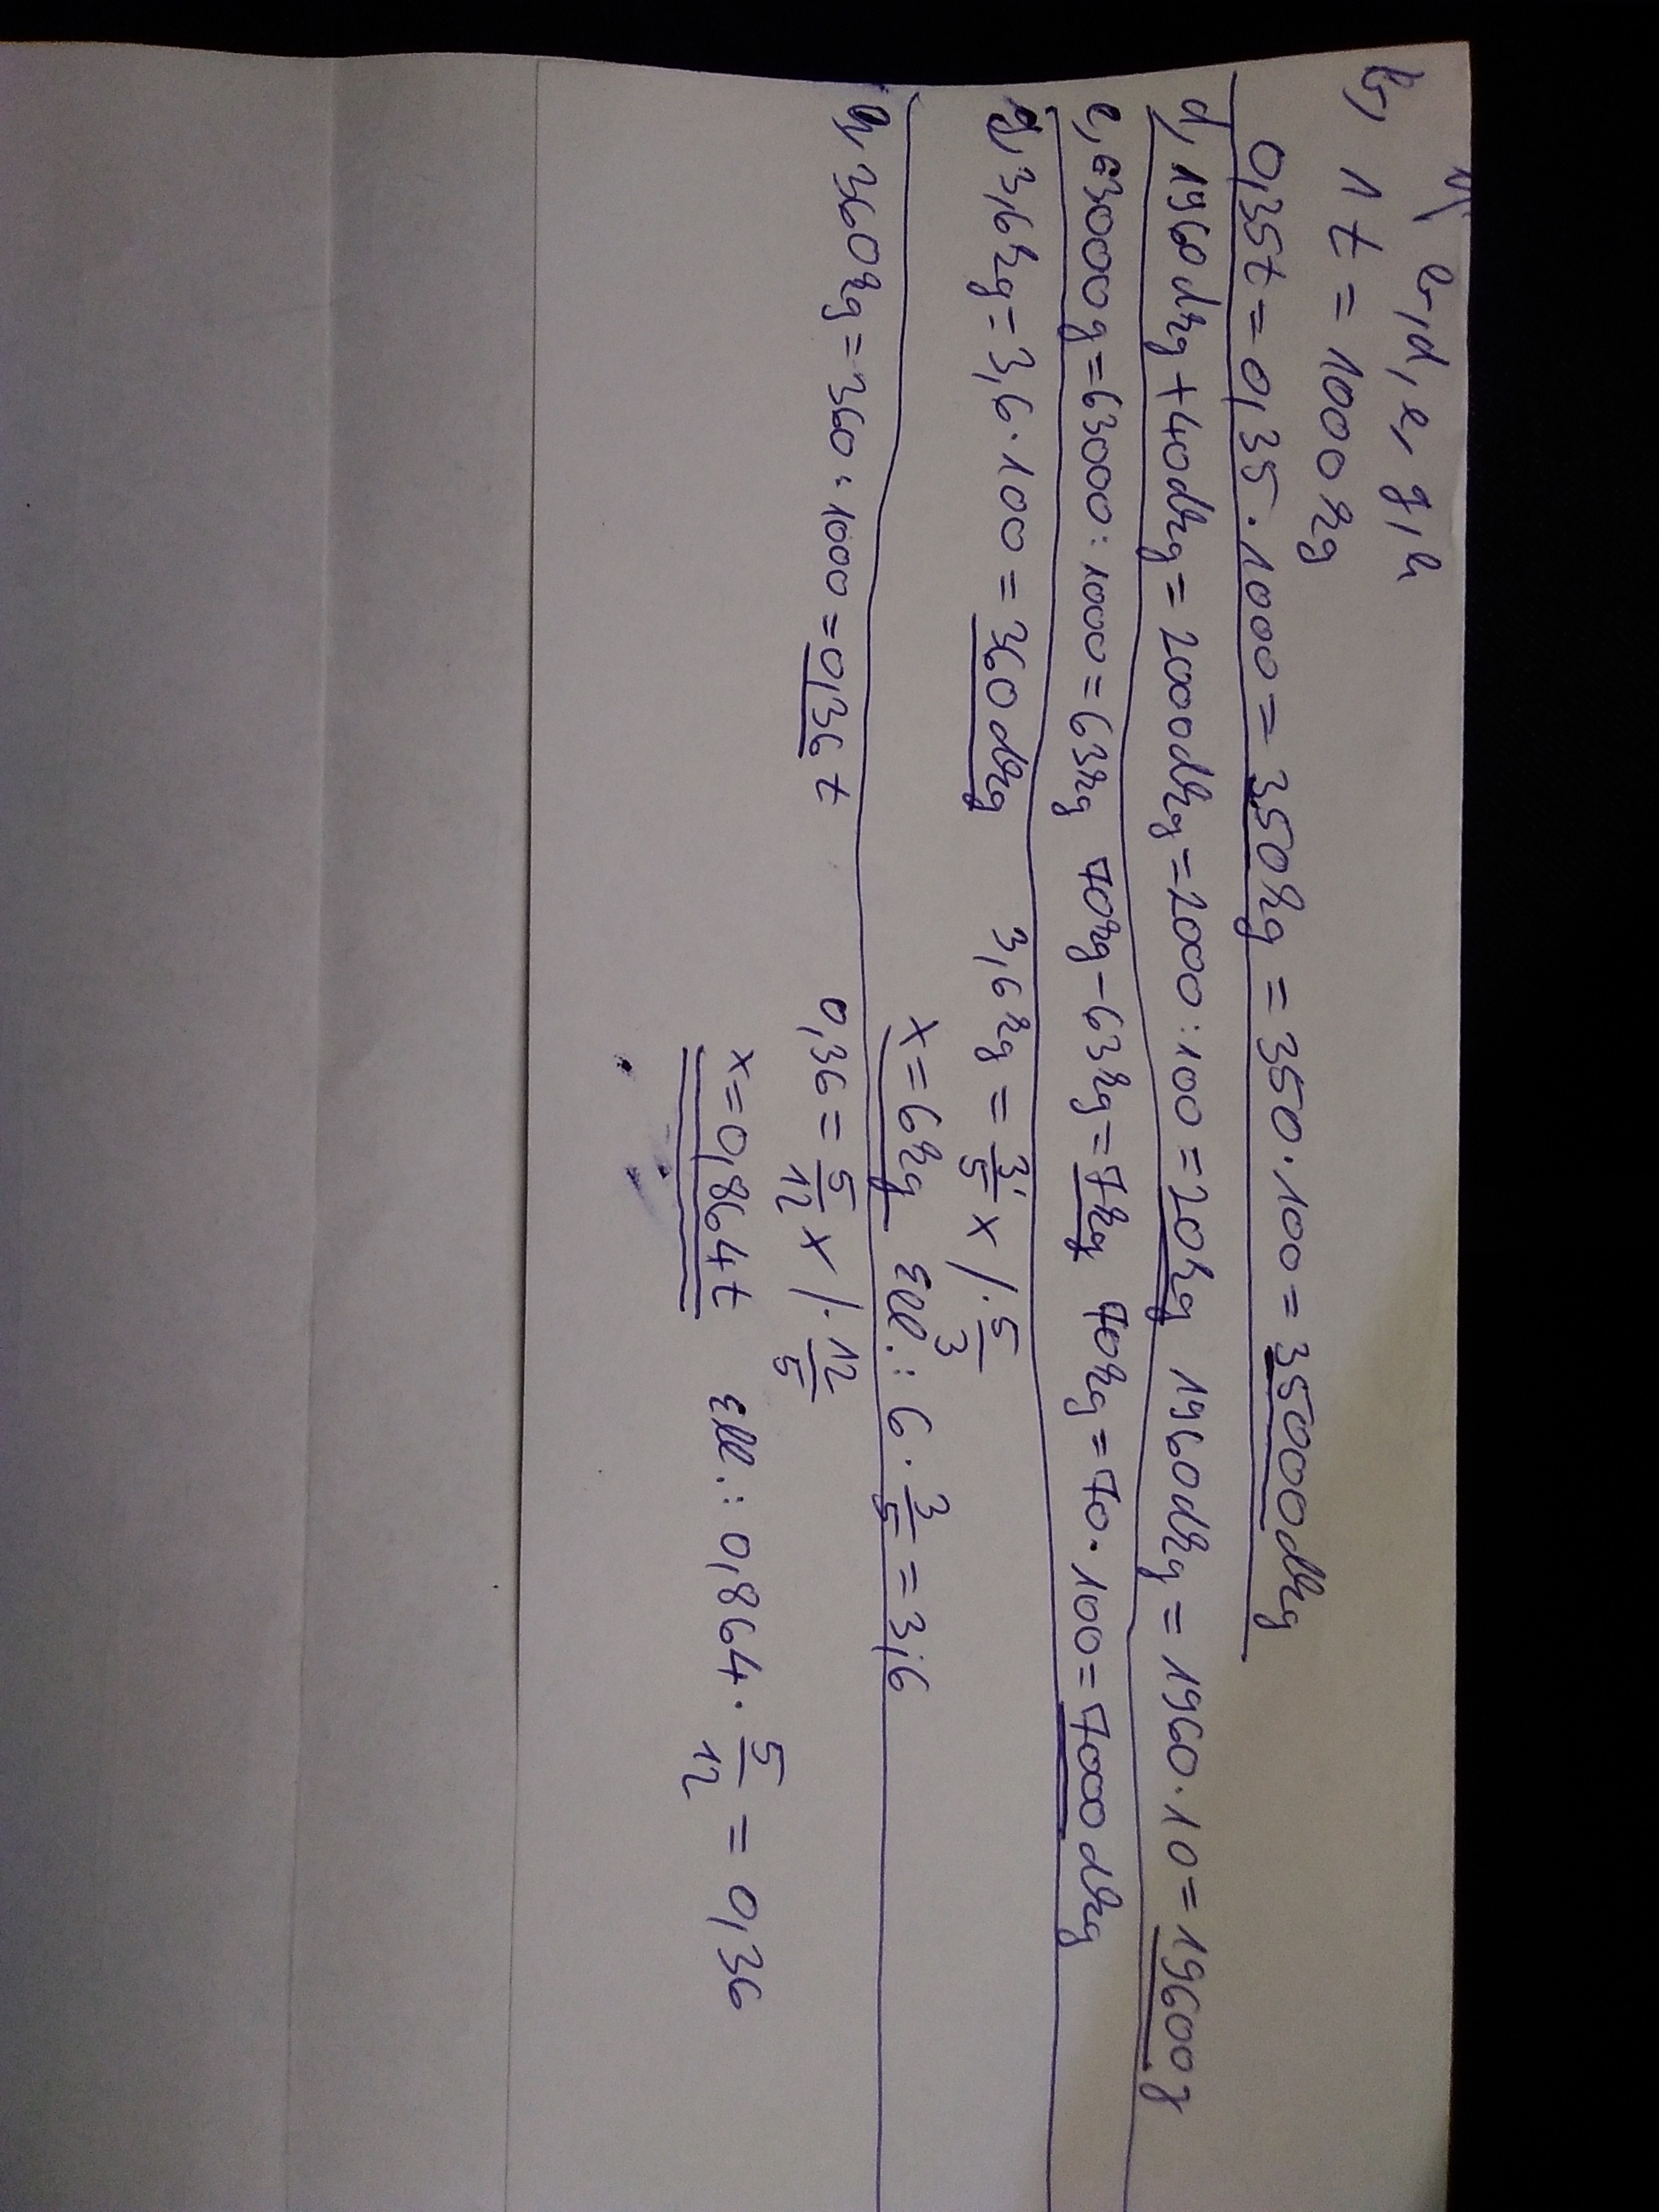 b, d, e, g, h
b, 1 t = 1000 kg
0,35t = 0,35 · 1000 = 350kg = 350 · 100 = 35000dkg
d, 1960dkg + 40dkg = 2000dkg = 2000 : 100 = 20kg 1960dkg = 1960 · 10 = 19600g
e, 63000g = 63000 : 1000 = 63kg 70kg - 63kg = 7kg 70kg = 70 · 100 = 7000dkg
g, 3,6kg = 3,6 · 100 = 360dkg 3,6kg = 3/5 x /· 5/3
x = 6kg Ell.: 6 · 3/5 = 3,6
h, 360kg = 360 : 1000 = 0,36 t 0,36 = 5/12 x /· 12/5
x = 0,864t Ell.: 0,864 · 5/12 = 0,36